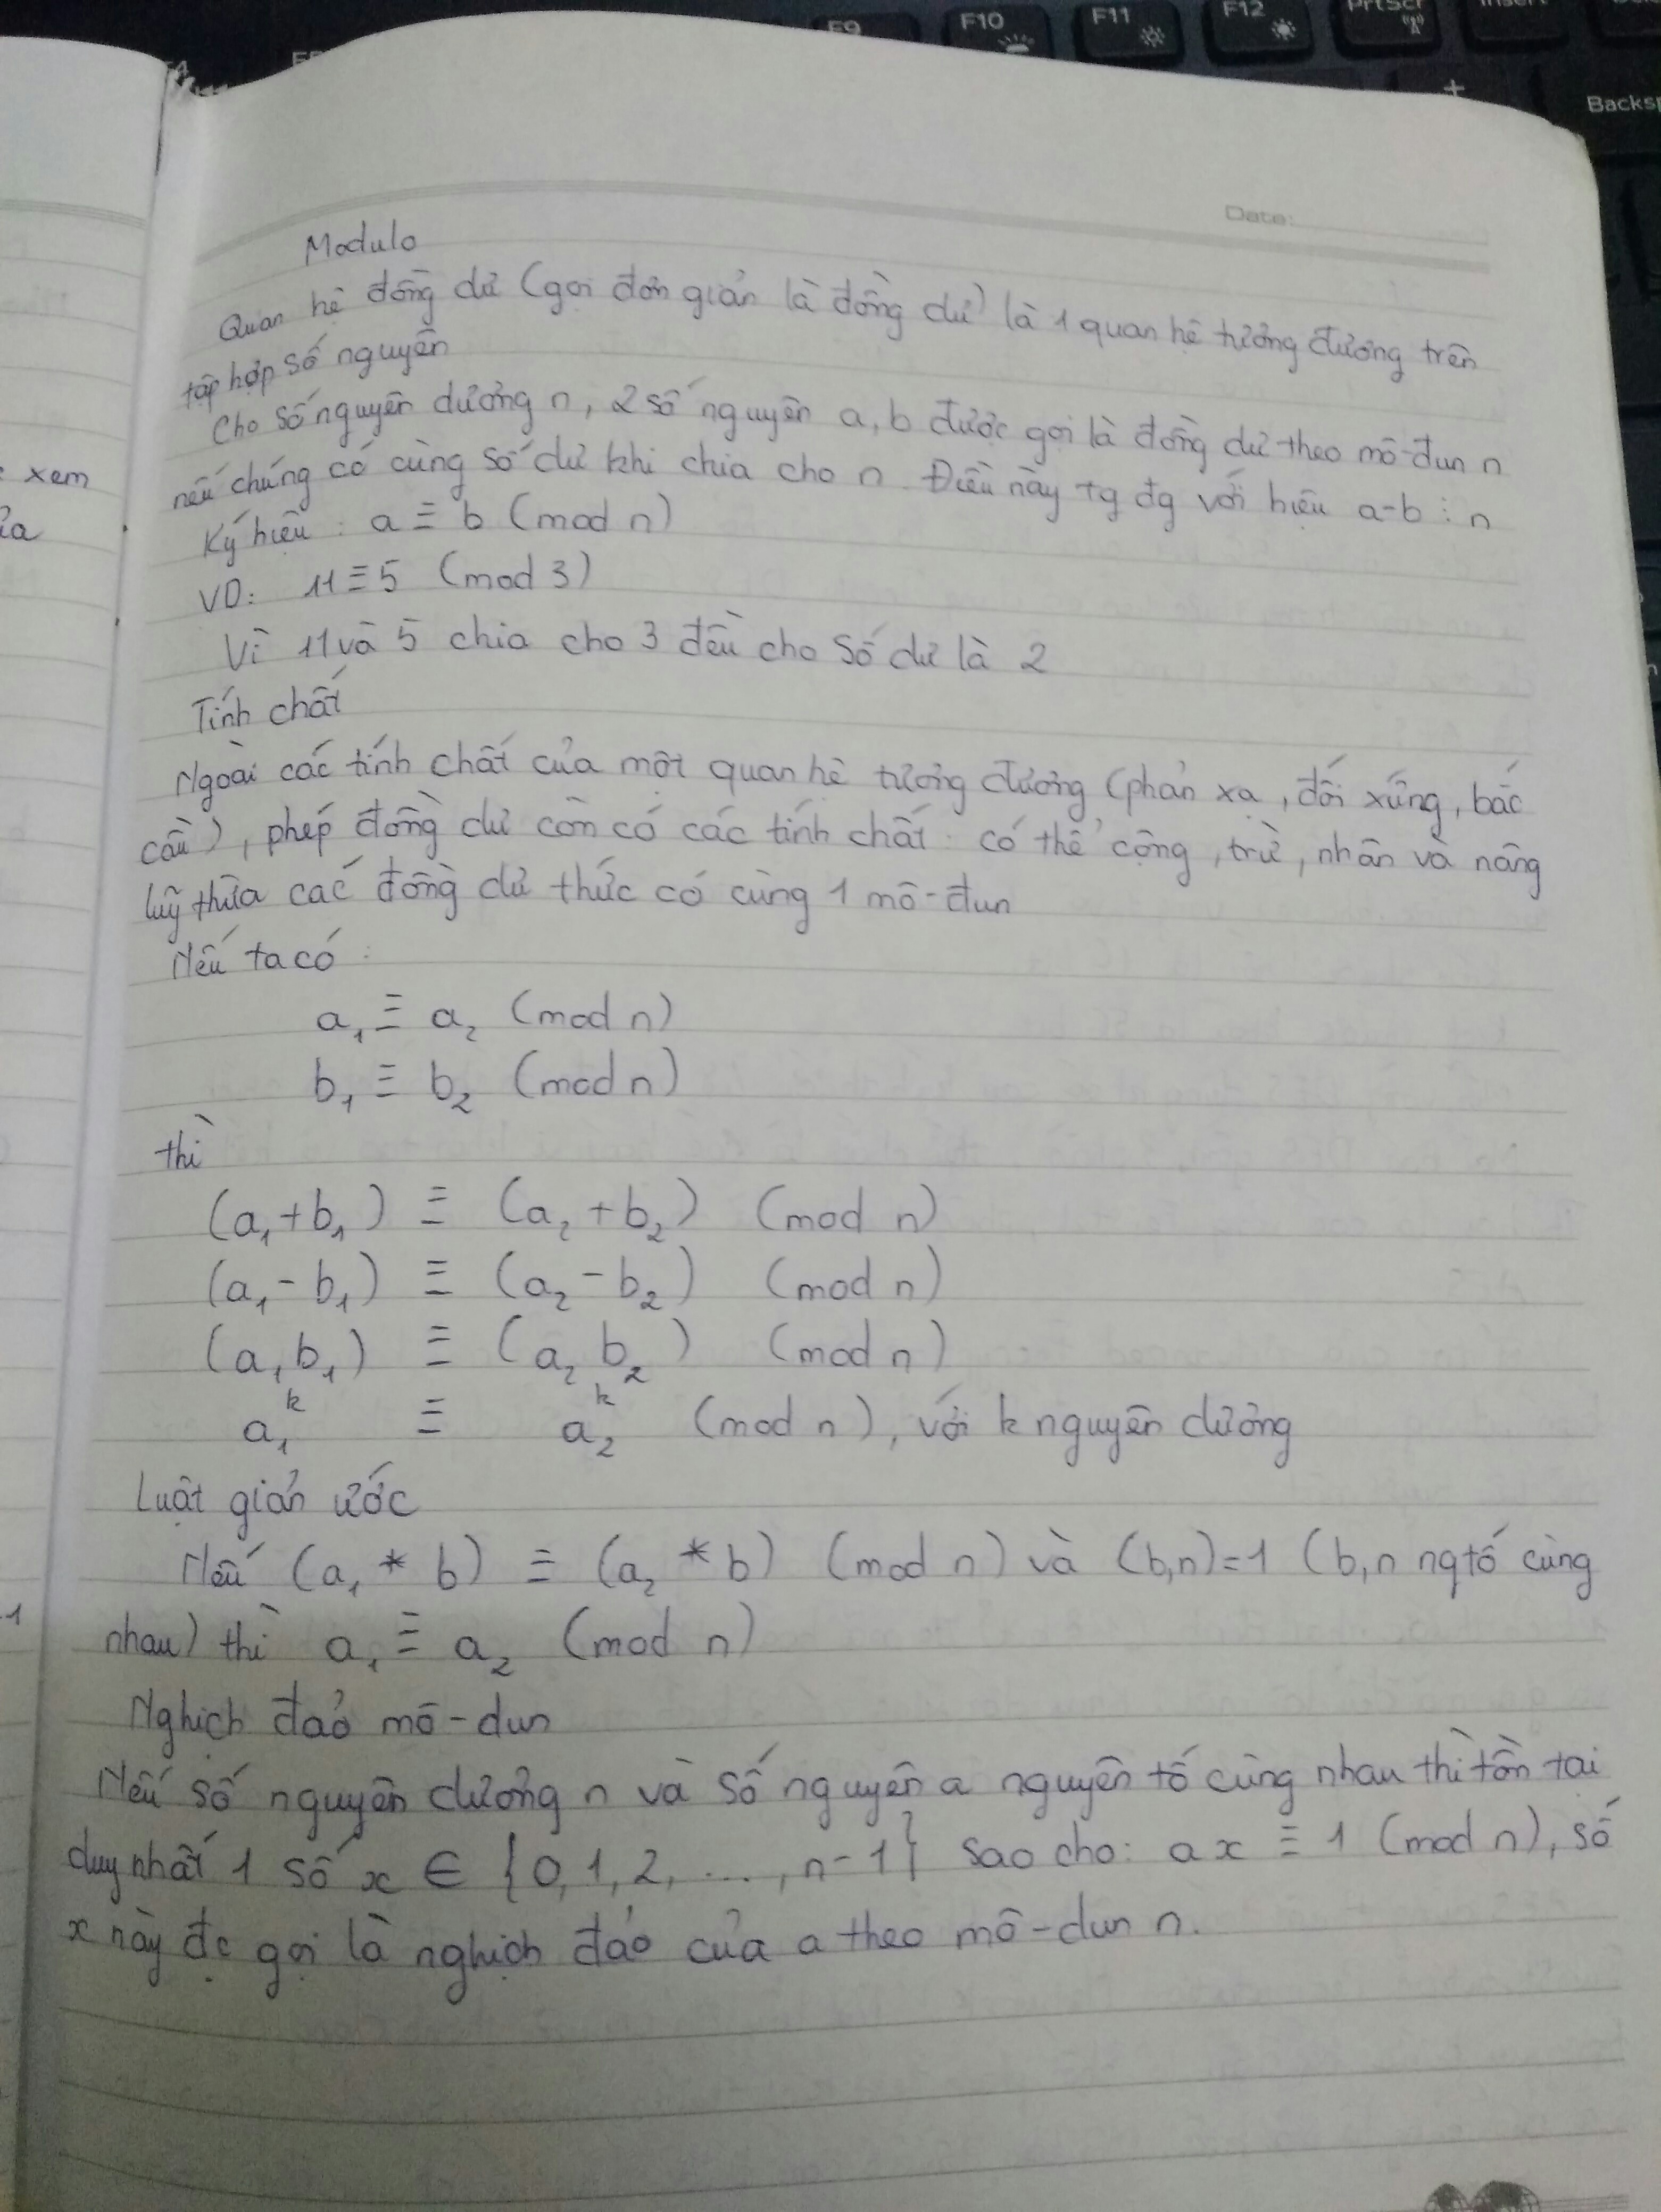 F9 F10 F11 F12 PrtScr Insert
Backsp
Date:
Modulo
Quan hệ đồng dư (gọi đơn giản là đồng dư) là 1 quan hệ tương đương trên
tập hợp số nguyên
Cho số nguyên dương n, 2 số nguyên a, b được gọi là đồng dư theo mô-đun n
nếu chúng có cùng số dư khi chia cho n. Điều này tg đg với hiệu a-b ⋮ n
Ký hiệu : a ≡ b (mod n)
VD: 11 ≡ 5 (mod 3)
Vì 11 và 5 chia cho 3 đều cho số dư là 2
Tính chất
Ngoài các tính chất của một quan hệ tương đương (phản xạ, đối xứng, bắc
cầu), phép đồng dư còn có các tính chất: có thể cộng, trừ, nhân và nâng
luỹ thừa các đồng dư thức có cùng 1 mô-đun
Nếu ta có :
a₁ ≡ a₂ (mod n)
b₁ ≡ b₂ (mod n)
thì
(a₁+b₁) ≡ (a₂+b₂) (mod n)
(a₁-b₁) ≡ (a₂-b₂) (mod n)
(a₁b₁) ≡ (a₂b₂) (mod n)
a₁ᵏ ≡ a₂ᵏ (mod n), với k nguyên dương
Luật giản ước
Nếu (a₁ * b) ≡ (a₂ * b) (mod n) và (b,n)=1 (b,n ng tố cùng
nhau) thì a₁ ≡ a₂ (mod n)
Nghịch đảo mô-dun
Nếu số nguyên dương n và số nguyên a nguyên tố cùng nhau thì tồn tại
duy nhất 1 số x ∈ {0,1,2, ..., n-1} sao cho: ax ≡ 1 (mod n), số
x này đc gọi là nghịch đảo của a theo mô-dun n.
xem
-1